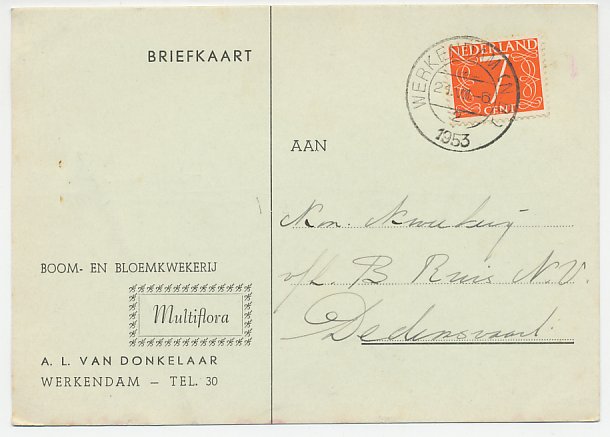 BRIEFKAART
NEDERLAND
7
CENT
WERKENDAM (N
1953
AAN
Kon. Kweekerij
v/h. B Ruis N.V.
Dedemsvaart.
BOOM- EN BLOEMKWEKERIJ
Multiflora
A. L. VAN DONKELAAR
WERKENDAM – TEL. 30